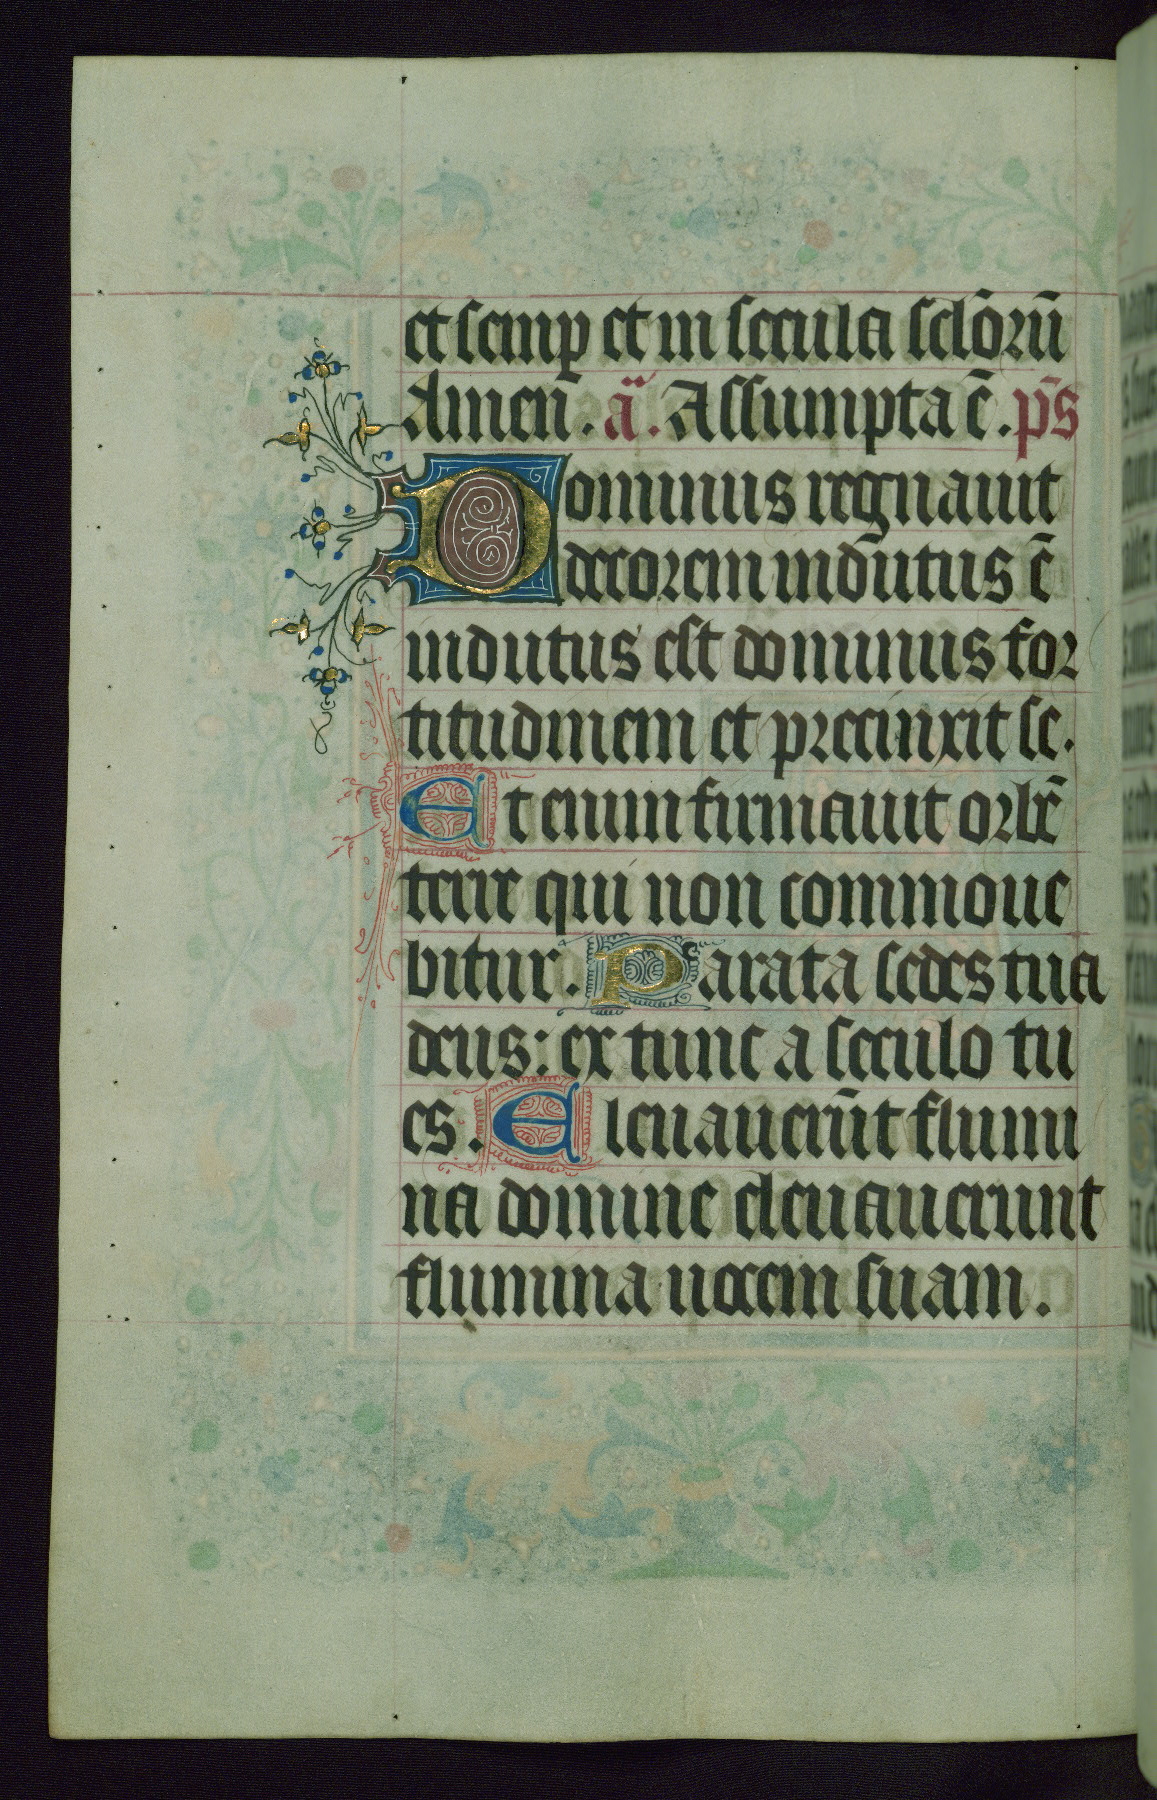 et semp et in secula sclōrū
Amen. ā. Assumpta ē. p̄s
Dominus regnauit
decorem indutus ē
indutus est dominus for
titudinem et precinxit se.
Et enim firmauit orbē
terre qui non commoue
bitur. Parata sedes tua
deus: ex tunc a seculo tu
es. Eleuauerūt flumi
na domine eleuauerunt
flumina uocem suam.